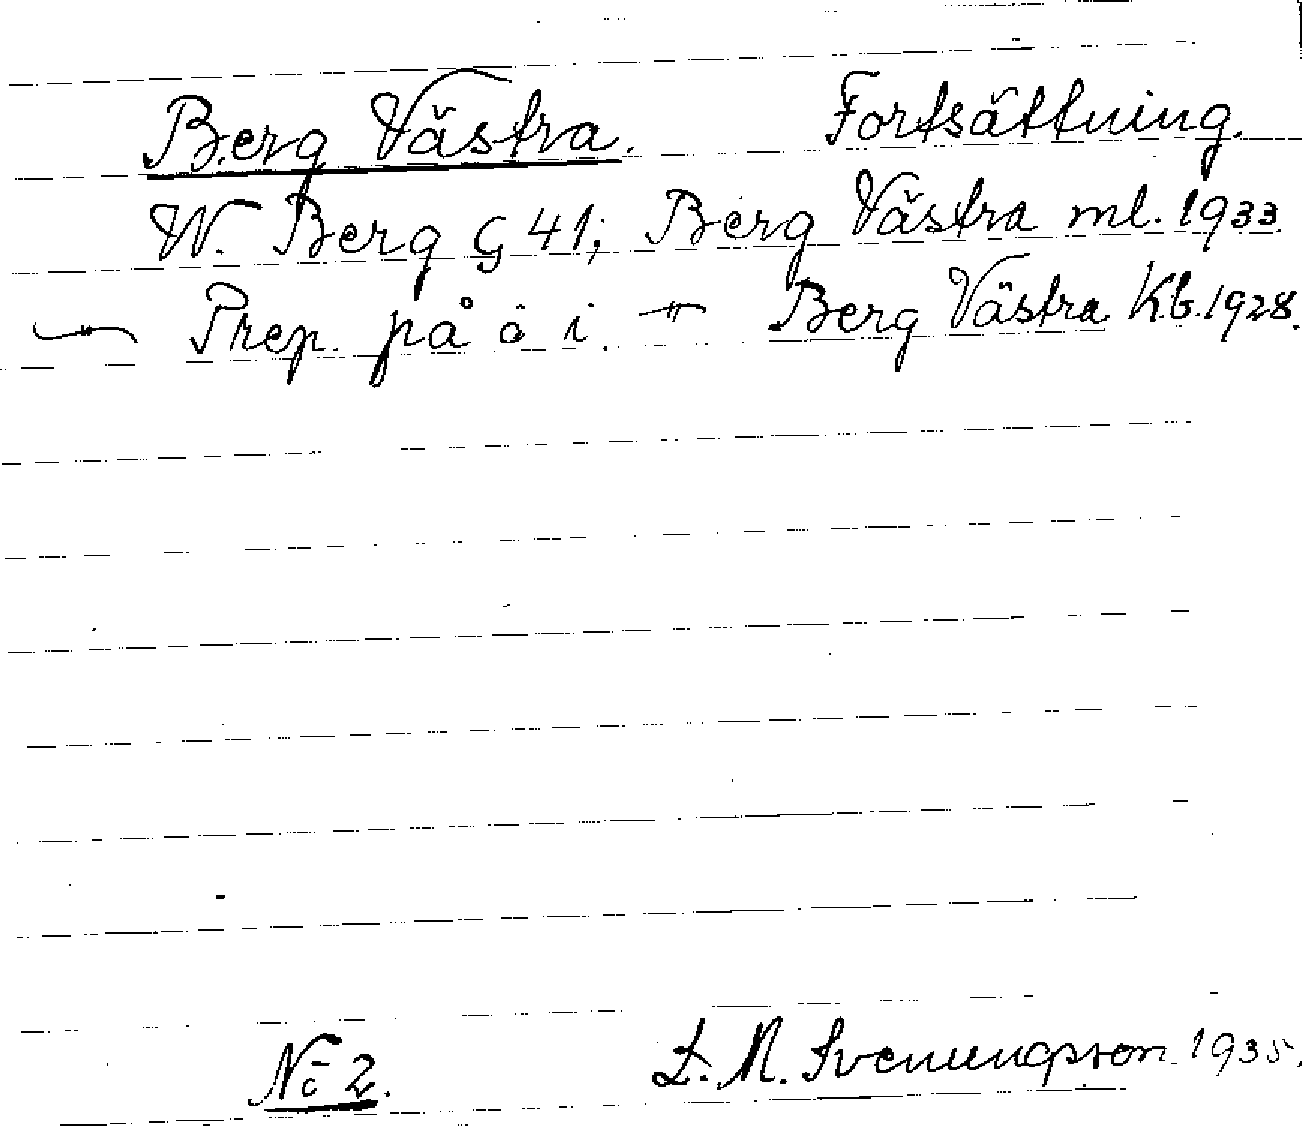 Berg Västra. Fortsättning.
W. Berg G 41; Berg Västra ml. 1933.
—"— Prep. på ö i. —"— Berg Västra Kb. 1928.
No 2. L. M. Svenungsson 1935.